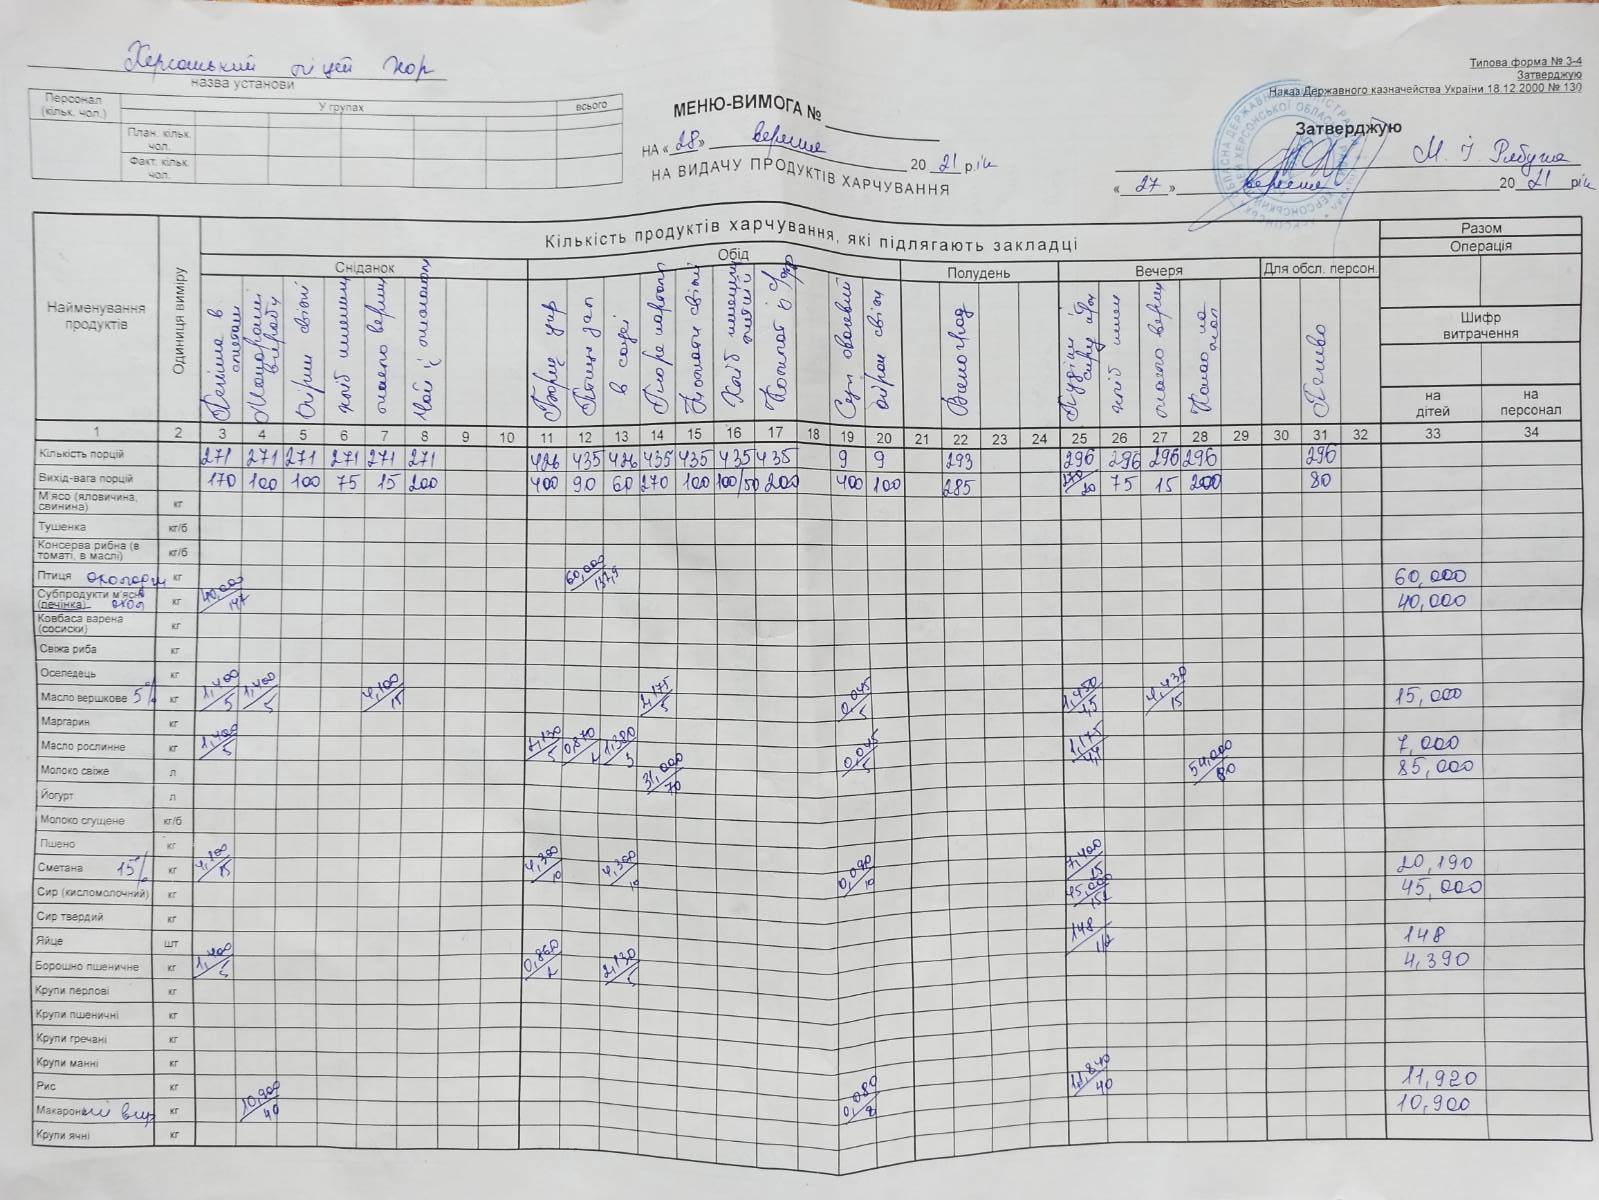 Херсонський ліцей ХОР
назва установи
Типова форма № 3-4
Затверджую
Наказ Державного казначейства України 18.12.2000 № 130
Персонал (кільк. чол.) У групах всього
План. кільк. чол.
Факт. кільк. чол.
МЕНЮ-ВИМОГА №
НА «28» вересня 2021 рік
НА ВИДАЧУ ПРОДУКТІВ ХАРЧУВАННЯ
Затверджую
М. І Рябуха
«27» вересня 2021 рік
Найменування продуктів Одиниця виміру Кількість продуктів харчування, які підлягають закладці Разом
Операція
Сніданок Обід Полудень Вечеря Для обсл. персон.
Шифр витрачення
Печінка в сметані
Макаронні вироби
Огірки свіжі
хліб пшенич
масло верш
Чай з лимоном
Борщ укр
Птиця зап
в соусі
Пюре картоп
Хліб пшенич
Компот із с/фр
Суп овочевий
огірки свіжі
Виноград
хліб пшен
масло верш
Какао на мол
Печиво
на дітей на персонал
1 2 3 4 5 6 7 8 9 10 11 12 13 14 15 16 17 18 19 20 21 22 23 24 25 26 27 28 29 30 31 32 33 34
Кількість порцій 271 271 271 271 271 271 426 435 426 435 435 435 435 9 9 293 296 296 296 296 296
Вихід-вага порцій 170 100 100 75 15 200 400 90 60 270 100 100/50 200 400 100 285 170/20 75 15 200 80
М'ясо (яловичина, свинина) кг
Тушенка кг/б
Консерва рибна (в томаті, в маслі) кг/б
Птиця охолодж кг 60,000/137,9 60,000
Субпродукти м'ясні (печінка) охол кг 40,000/147 40,000
Ковбаса варена (сосиски) кг
Свіжа риба кг
Оселедець кг
Масло вершкове кг 1,400/5 1,400/5 4,100/15 2,175/5 0,045/5 1,450/4,5 4,430/15 15,000
Маргарин кг
Масло рослинне кг 1,400/5 2,130/5 0,870/2 1,380/3 0,045/5 1,175/4,4 7,000
Молоко свіже л 31,000/70 54,000/80 85,000
Йогурт л
Молоко сгущене кг/б
Пшено кг
Сметана 15% кг 4,100/15 4,300/10 4,300/10 0,090/10 7,400/25 20,190
Сир (кисломолочний) кг 45,000/152 45,000
Сир твердий кг
Яйце шт 148/1/2 148
Борошно пшеничне кг 1,400/5 0,860/2 2,130/5 4,390
Крупи перлові кг
Крупи пшеничні кг
Крупи гречані кг
Крупи манні кг
Рис кг 11,840/40 0,080/8 11,920
Макаронні вир кг 10,900/40 10,900
Крупи ячні кг